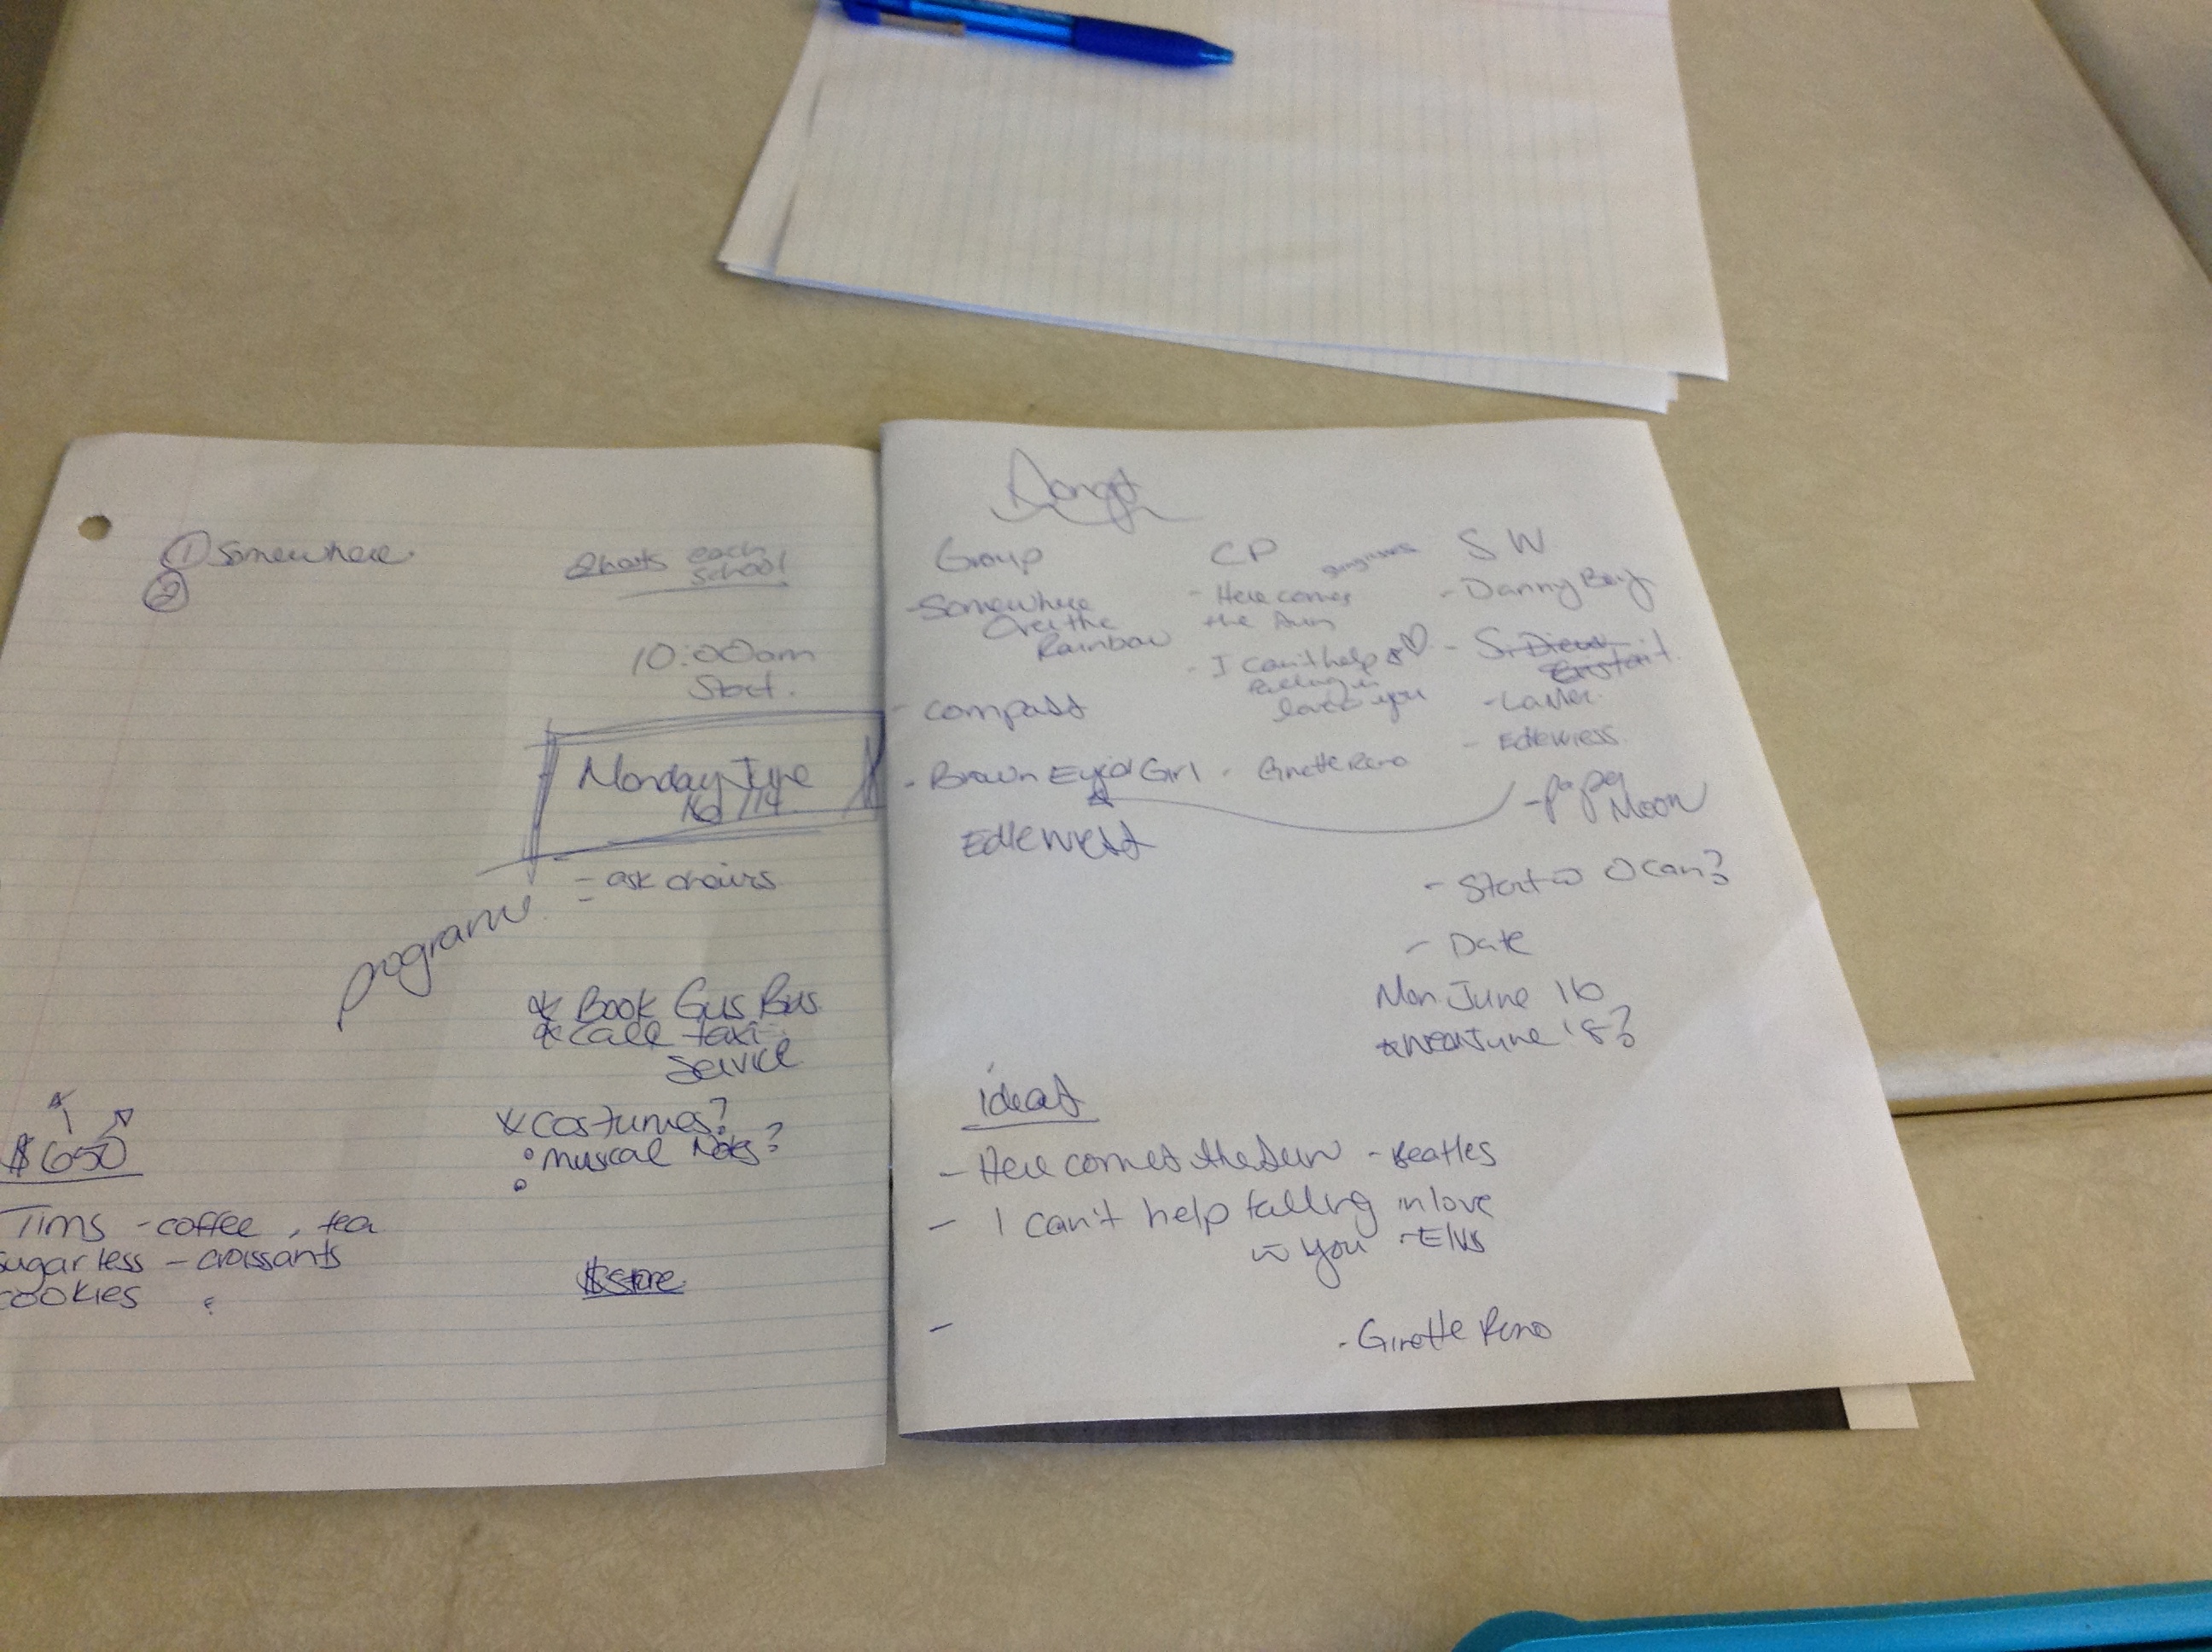 ① Somewhere
②
each
school
10:00am
Start.
Monday June
- ask chairs
programme
* Book Gus Bus
* Call taxi
service
* Costumes?
• Musical Notes?
$650
Tims - coffee, tea
sugarless - croissants
cookies
$store
Songs
Group
- Somewhere
Over the
Rainbow
- Compass
- Brown Eyed Girl
Edleweiss
CP
- Here comes
the Sun
- I can't help
falling in
love you
- Ginette Reno
SW
- Danny Boy
- Si Dieu
Existait
- Edleweiss
- Paper
Moon
- Start w O Can?
- Date
Mon June 16
June 18?
ideas
- Here comes the Sun - Beatles
- I can't help falling in love
w you - Elvis
-
- Ginette Reno